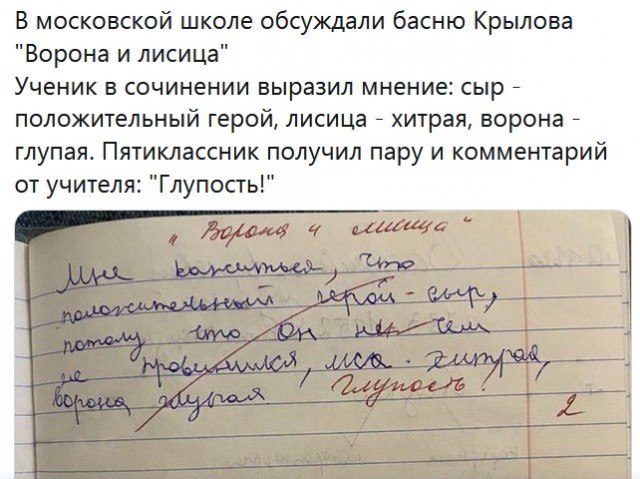 В московской школе обсуждали басню Крылова
"Ворона и лисица"
Ученик в сочинении выразил мнение: сыр -
положительный герой, лисица - хитрая, ворона -
глупая. Пятиклассник получил пару и комментарий
от учителя: "Глупость!"
"Ворона и лисица"
Мне кажиться, что
положительный герой - сыр,
потому что он не чем
не провинился, лиса - хитрая,
ворона глупая Глупость!
2